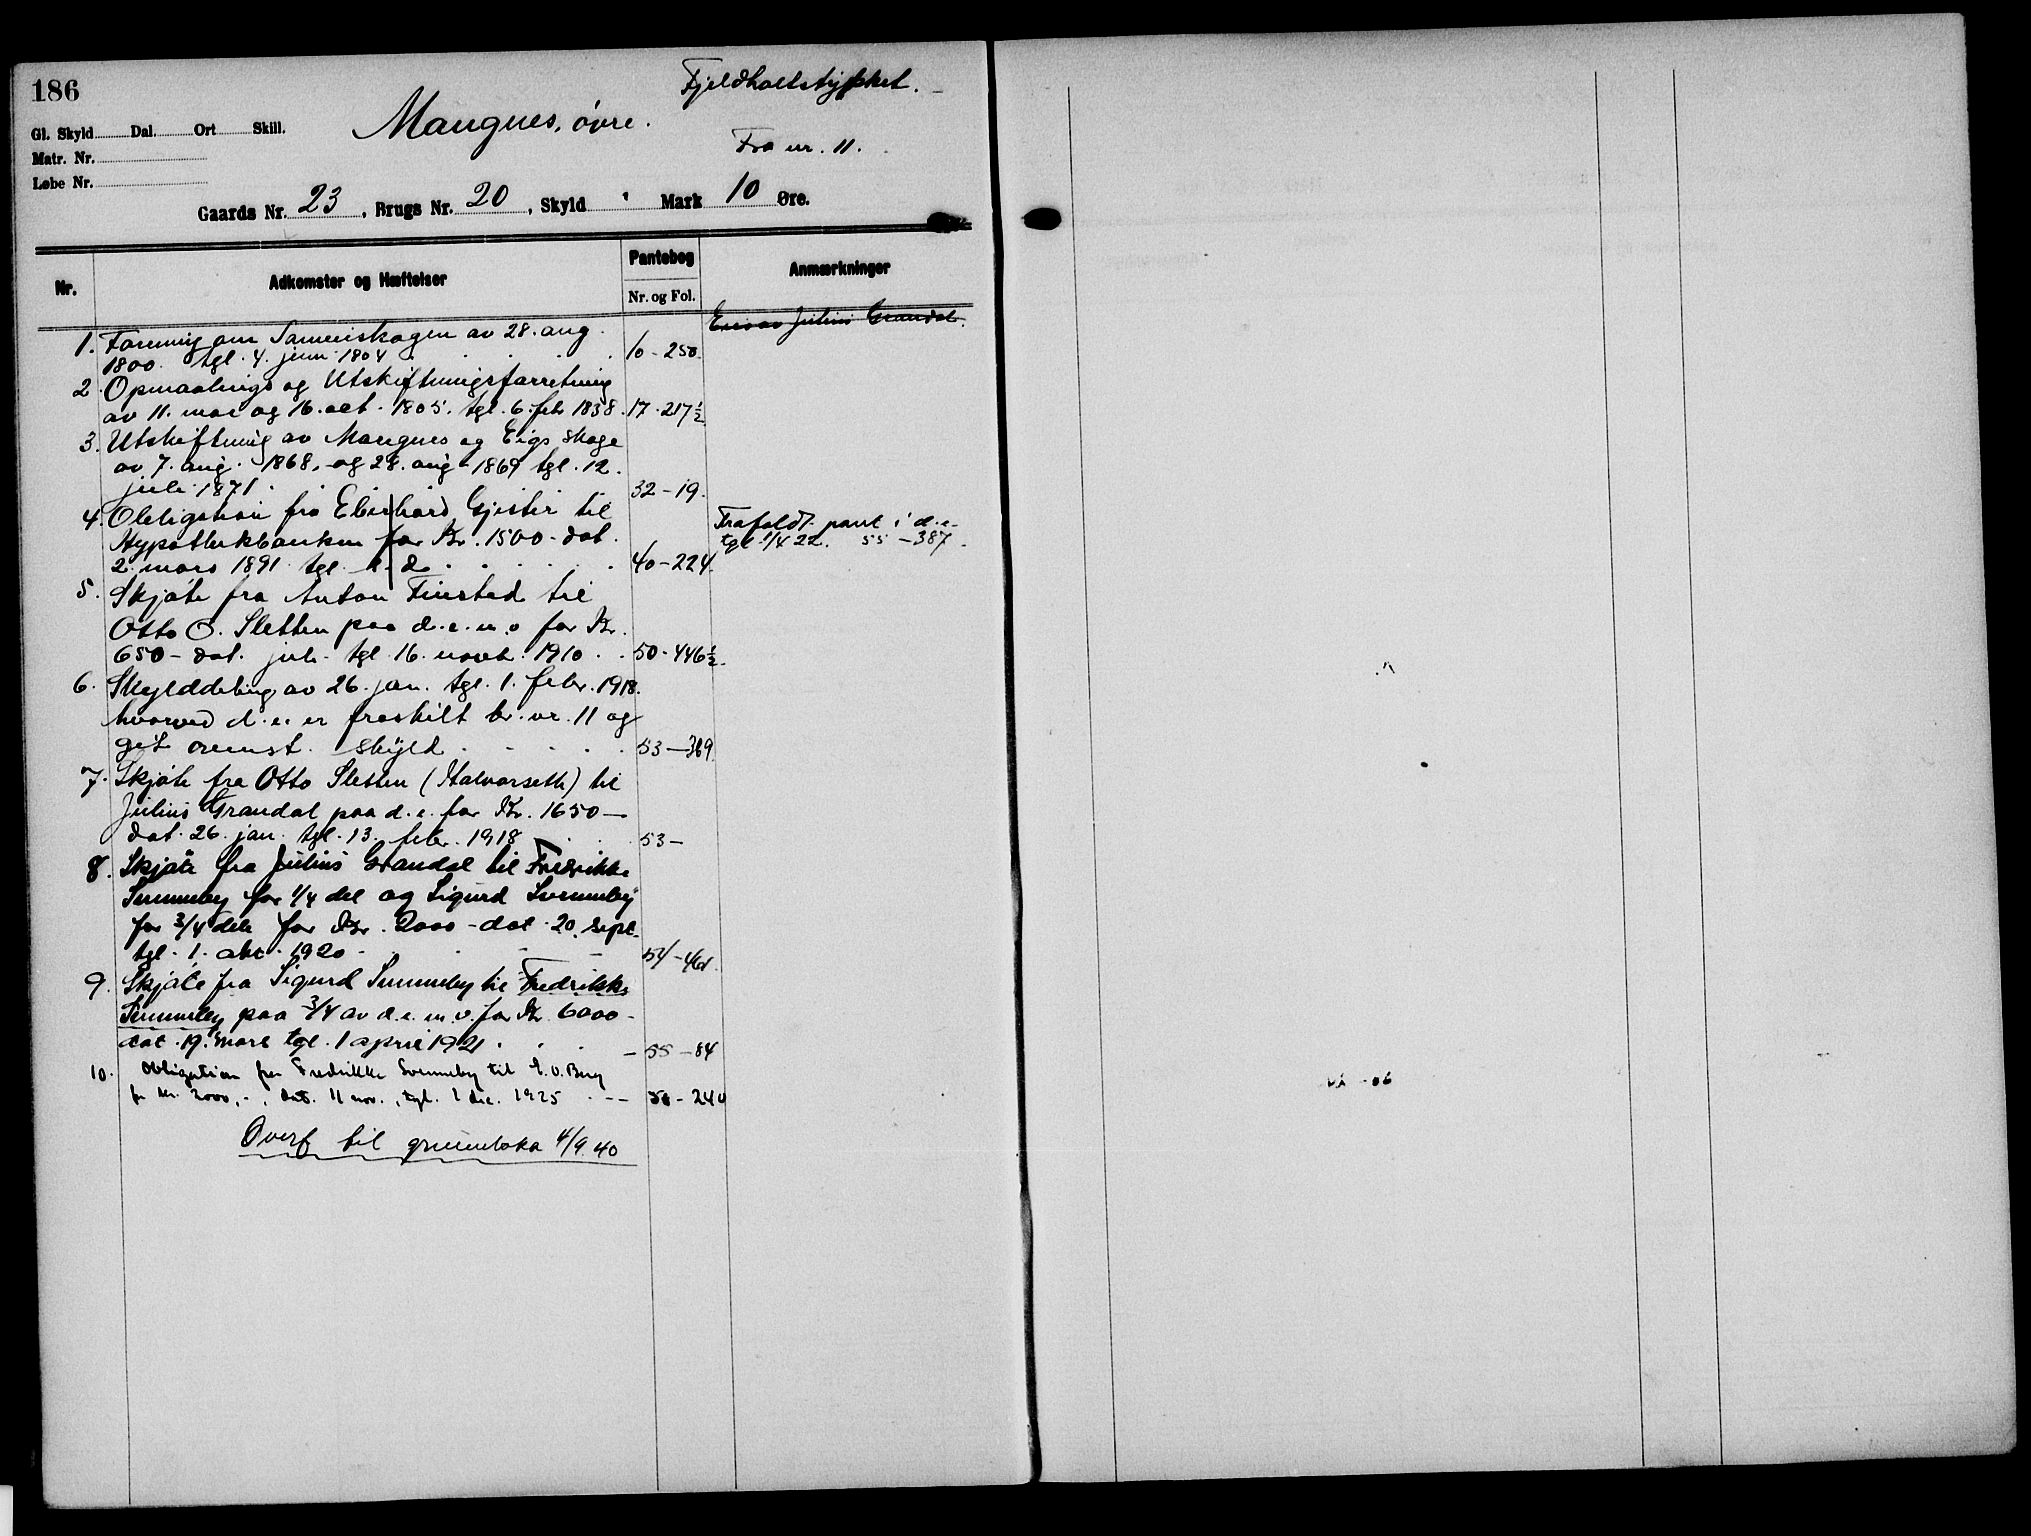 186
Fjeldholtstykket.
Gl. Skyld Dal. Ort Skill.
Mangnes, øvre.
Matr. Nr.
Fra nr. 11.
Løbe Nr.
Gaards Nr. 23, Brugs Nr. 20, Skyld Mark 10 Øre.
Nr.
Adkomster og Hæftelser
Pantebog
Nr. og Fol.
Anmærkninger
Eies av Julius Grandal.
1. om Sameieskogen av 28. aug.
1800. tgl. 4. juni 1804 10-250.
2. Opmaalings og Utskiftningsforretning
av 11. mai og 16. oct. 1805. tgl. 6. feb 1838. 17-217½
3. Utskiftning av Mangnes og Eigs skoge
av 7. aug. 1868, og 28. aug 1869 tgl. 12.
juli 1871. 32-19.
4. Obligation fra Eberhard Gjester til
Hypothekbanken for Kr. 1500 - dat.
2. mars 1891 tgl. s. d. 40-224.
Frafaldt pant i d. e.
tgl. 1/4 22. 55-387.
5. Skjøte fra Anton Finstad til
Otto O. Sletten paa d. e. m. o for Kr.
650 - dat. juli - tgl. 16. novbr. 1910. 50-446½
6. Skylddeling av 26. jan. tgl. 1. febr. 1918.
hvorved d. e. er fraskilt br. nr. 11 og
git ovenst. skyld 53-369.
7. Skjøte fra Otto Sletten (Halvorseth) til
Julius Grandal paa d. e. for Kr. 1650 -
dat. 26. jan. tgl. 13. febr. 1918 53-
8. Skjøte fra Julius Grandal til Fredrikke
Svenneby for 1/4 del og Sigurd Svenneby
for 3/4 dele for Kr. 2000 - dat. 20. sept.
tgl. 1. okt. 1920 54-461.
9. Skjøte fra Sigurd Svenneby til Fredrikke
Svenneby paa 3/4 av d. e. m. v. for Kr. 6000 -
dat. 19. mars tgl. 1 april 1921. 55-84
10. Obligation fra Fredrikke Svenneby til E. O. Berg
for kr. 2000,-, dat. 11 nov., tgl. 1 dec. 1925 58-240
Overf til grunnboka 4/9. 40